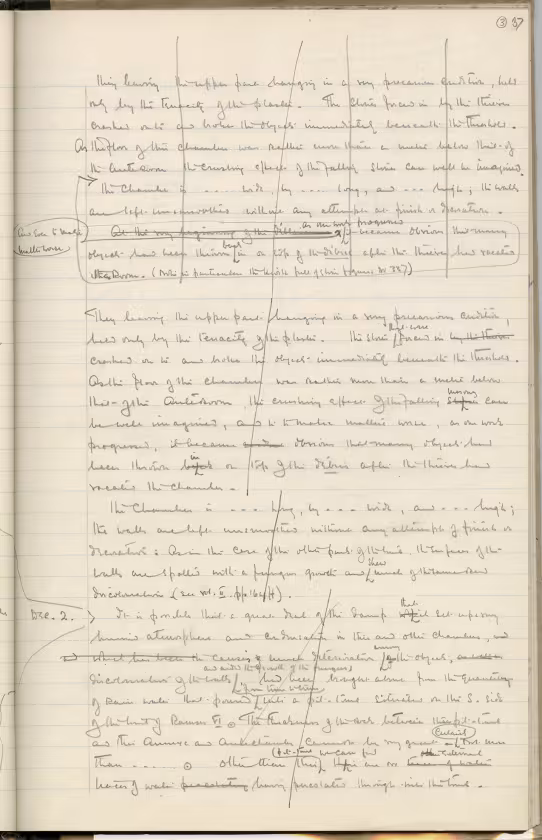 ③ 37
thus leaving the upper part hanging in a very precarious condition, held
only by the tenacity of the plaster. The stones forced in by the thieves
crashed onto and broke the objects immediately beneath the threshold.
As the floor of this chamber was rather more than a metre below that of
the Anteroom the crushing effect of the falling stones can well be imagined.
The Chamber is .... wide, by .... long, and ... high; the walls
are left unsmoothed without any attempt at finish or decoration.
and to make matters worse
At the very beginning of the as our work progressed it became obvious that many
objects had been thrown in on top of the débris after the thieves had vacated
the Room. (Note in particular the full of stone figures, No 327)
They leaving the upper part hanging in a very precarious condition,
held only by the tenacity of the plaster. The stones that were forced in by the thieves
crashed on to and broke the objects immediately beneath the threshold.
As the floor of this chamber was rather more than a metre below
that of the Anteroom the crushing effect of the falling masonry can
be well imagined, and to make matters worse, as our work
progressed, it became obvious that many objects had
been thrown in on top of the débris after the thieves had
vacated the Chamber.
The Chamber is ... long, by ... wide, and ... high;
the walls are left unsmoothed without any attempt of finish or
decoration: As in the case of the other parts of the tomb, the surfaces of the
walls are spoiled with a fungus growth and show much of the same
discoloration (see vol. II. pp
Dec. 2. It is possible that a great deal of the damp that set up very
humid atmosphere and in this and other chambers, and
the causes much deterioration among the objects,
and aided the growth of the fungus
discoloration of the walls had been brought about from the quantity
from time to time
of rain water that poured into a pit-tomb situated on the S. side
of the tomb of Rameses VI. The thickness of the rock between the pit-tomb
and this Annexe and Antechamber cannot be very great - not more
than ........ other than this pit-tomb we can find
traces of water having percolated through into the tomb.